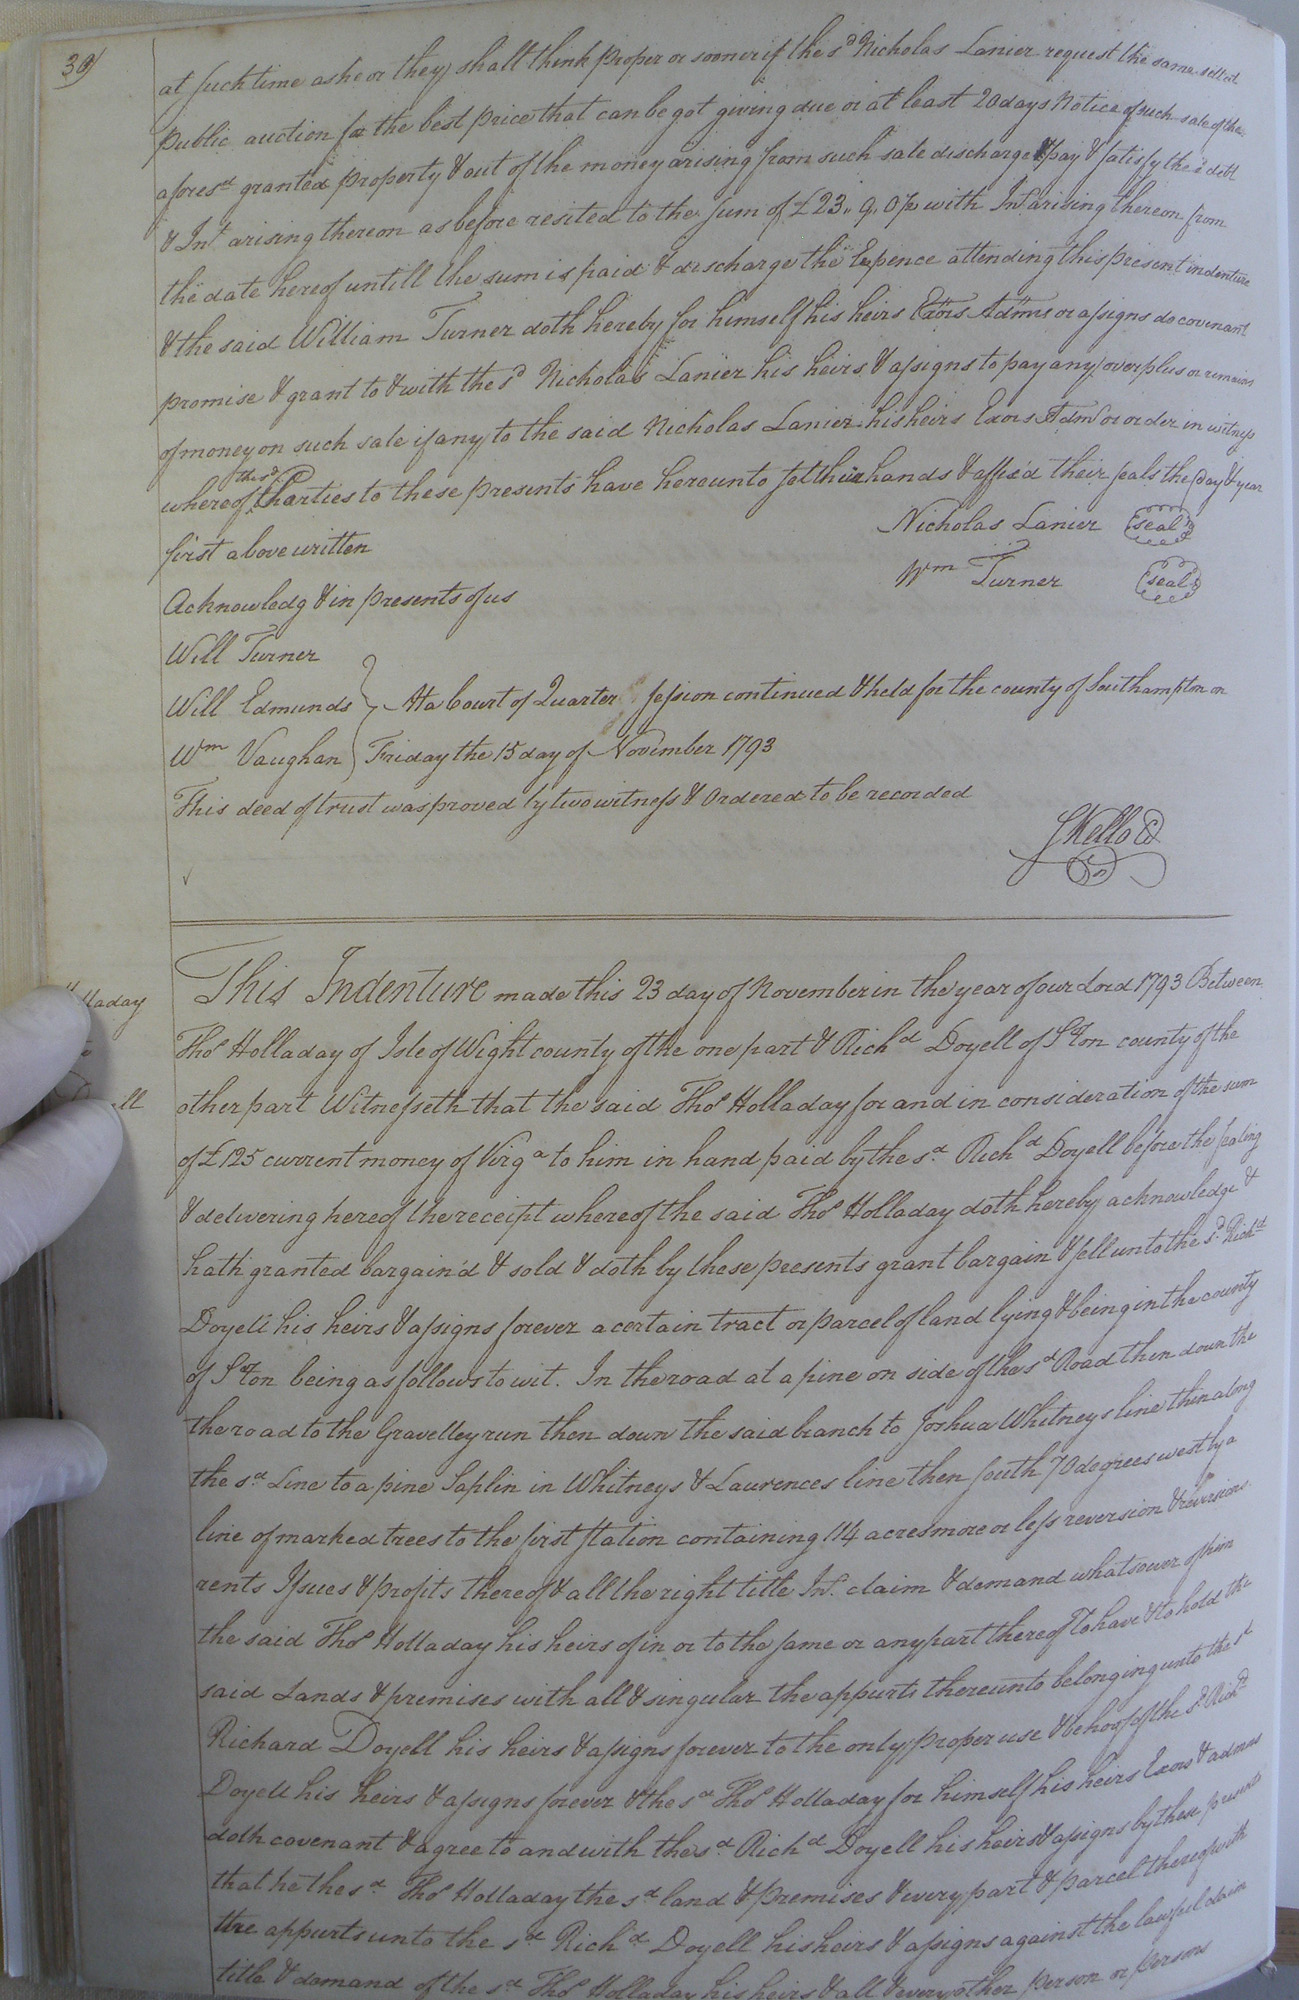 at such time as he or they shall think proper or sooner if the sd Nicholas Lanier request the same sell at
public auction for the best price that can be got giving due or at least 20 days Notice of such sale of the
aforesd granted property & out of the money arising from such sale discharge pay & satisfy the sd debt
& Int arising thereon as before resited to the sum of £23,, 9,, 0 with Int arising thereon from
the date hereof untill the sum is paid & discharge the Expence attending this present indenture
& the said William Turner doth hereby for himself his heirs Exors Adms or assigns do covenant
promise & grant to & with the sd Nicholas Lanier his heirs & assigns to pay any overplus or remains
of money on such sale if any to the said Nicholas Lanier his heirs Exors Adms or order in witness
whereof the sd Parties to these presents have hereunto set their hands & affixd their seals the day & year
first above written
Nicholas Lanier seal
Acknowledg & in presents of us
Wm Turner seal
Will Turner
Will Edmunds At a Court of Quarter Session continued & held for the county of Southampton on
Wm Vaughan Friday the 15 day of November 1793
This deed of trust was proved by two witness & Ordered to be recorded
S Kello C
39
This Indenture made this 23 day of November in the year of our Lord 1793 Between
Thos Holladay of Isle of Wight county of the one part & Richd Doyell of S Ton county of the
other part Witnesseth that the said Thos Holladay for and in consideration of the sum
of £125 current money of Virga to him in hand paid by the sd Richd Doyell before the sealing
& delivering hereof the receipt whereof the said Thos Holladay doth hereby acknowledge &
hath granted bargain'd & sold & doth by these presents grant bargain & sell unto the sd Richd
Doyell his heirs & assigns forever a certain tract or parcel of land lying & being in the county
of S Ton being as follows to wit. In the road at a pine on side of the sd Road then down the
the road to the Gravelley run then down the said branch to Joshua Whitneys line then along
the sd Line to a pine Saplin in Whitneys & Laurences line then South 70 degrees west by a
line of marked trees to the first station containing 114 acres more or less reversion & revirsions
rents Issues & profits thereof & all the right title Int. claim & demand whatsoever of him
the said Thos Holladay his heirs of in or to the same or any part thereof To have & to hold the
said Lands & premises with all & singular the appurts thereunto belonging unto the sd
Richard Doyell his heirs & assigns forever to the only proper use & behoof of the sd Richd
Doyell his heirs & assigns forever & the sd Thos Holladay for himself his heirs Exors & adms
doth covenant & agree to and with the sd Richd Doyell his heirs & assigns by these presents
that he the sd Thos Holladay the sd land & premises & every part & parcel thereof with
the appurts unto the sd Richd Doyell his heirs & assigns against the lawful claim
title & demand of the sd Thos Holladay his heirs & all & every other person or persons